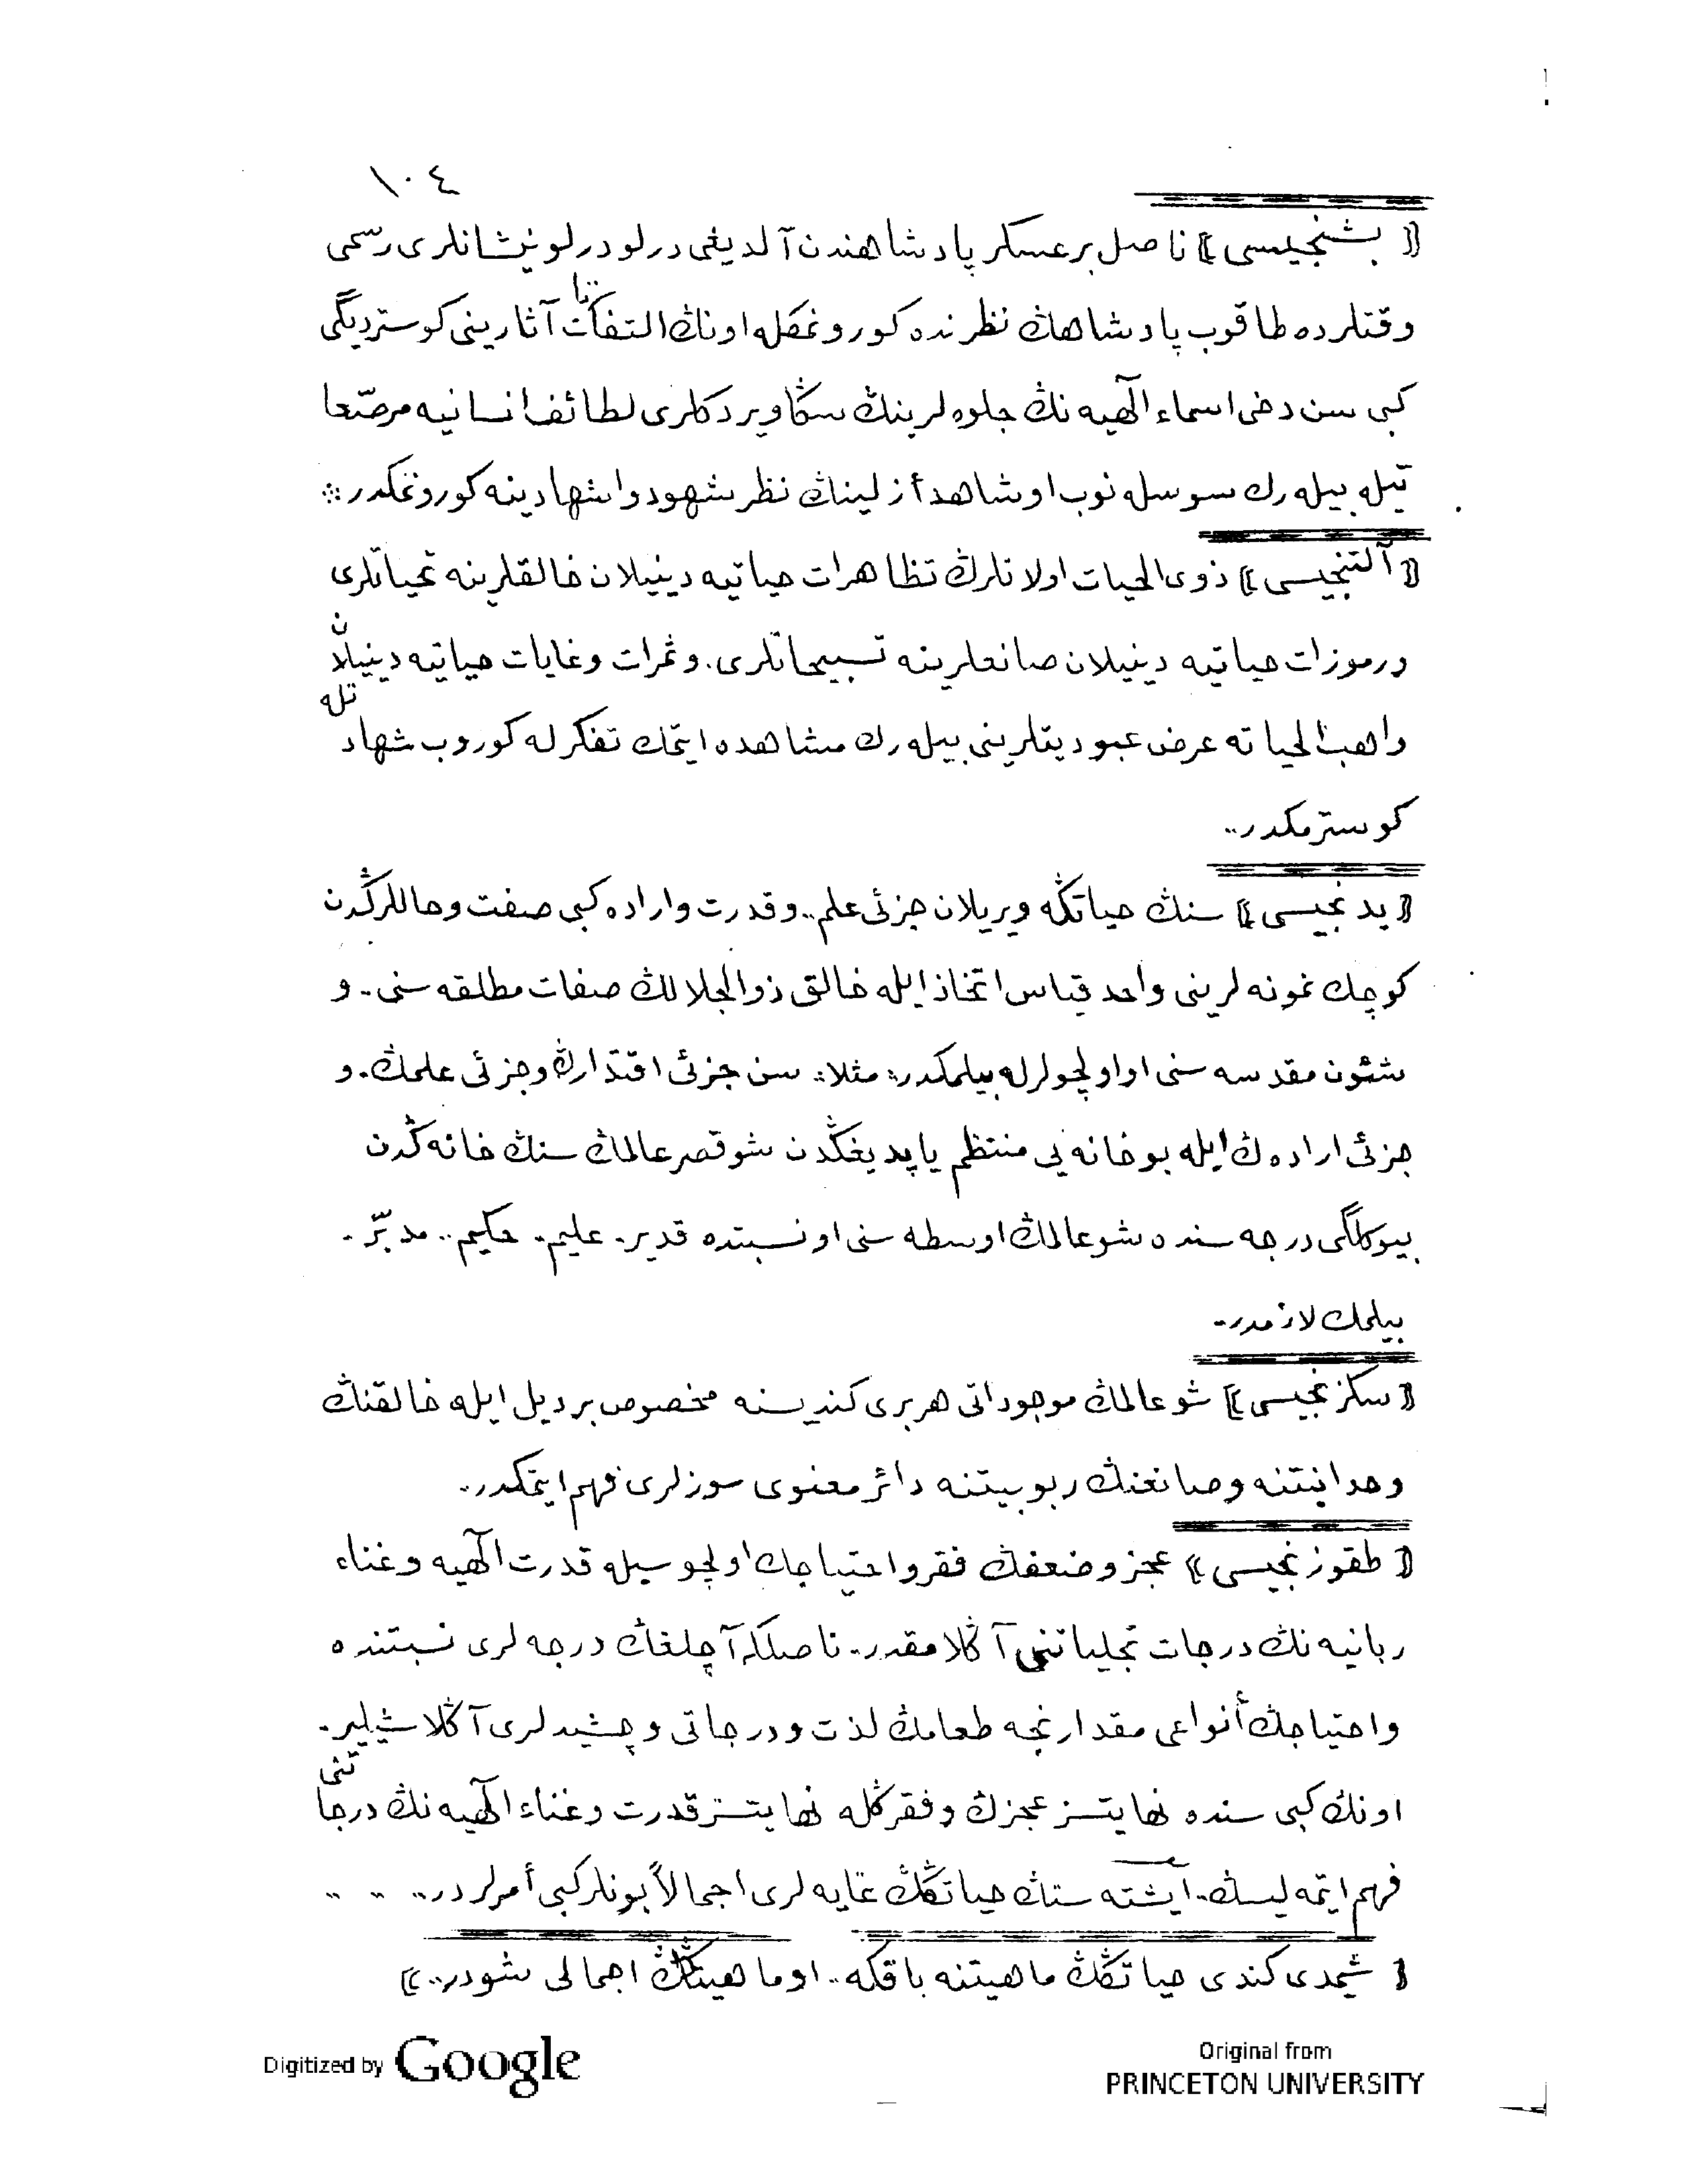 ١٠٤
﴿ بشنجیسی ﴾ ناصل بر عسکر پادشاهندن آلدیغی درلو درلو نیشانلری رسمی
وقتلرده طاقوب پادشاهڭ نظرنده کورونمکله اونڭ التفاتنڭ آثارینی کوستردیگی
کبی سن دخی اسماء الٓهیه نڭ جلوه لرینڭ سڭا ویردکلری لطائف انسانیه مرصّعا
تیله بیله رك سوسله نوب او شاهد أزلینڭ نظر شهود و اشهادینه کورونمکدر ⁘
﴿ آلتنجیسی ﴾ ذوی الحیات اولانلرڭ تظاهرات حیاتیه دینیلان خالقلرینه تحیاتلری
و رموزات حیاتیه دینیلان صانعلرینه تسبیحاتلری. و ثمرات و غایات حیاتیه دینیلان
واهب الحیاته عرض عبودیتلرینی بیله رك مشاهده ایتمك تفکرله کوروب شهادتله
کوسترمکدر..
﴿ یدنجیسی ﴾ سنڭ حیاتڭه ویریلان جزئی علم.. و قدرت و اراده کبی صفت و حاللرڭدن
کوچك نمونه لرینی واحد قیاس اتخاذ ایله خالق ذوالجلالڭ صفات مطلقه سنی.. و
شئون مقدسه سنی او اولچولرله بیلمکدر: مثلا: سن جزئی اقتدارڭ و جزئی علمڭ. و
جزئی اراده ڭ ایله بو خانه یی منتظم یاپدیغڭدن شو قصر عالمڭ سنڭ خانه ڭدن
بیوکلگی درجه سنده شو عالمڭ اوسطه سنی او نسبتده قدیر. علیم. حکیم.. مدبّر .
بیلمك لازمدر..
﴿ سکزنجیسی ﴾ شو عالمڭ موجوداتی هر بری کندیسنه مخصوص بر دیل ایله خالقنڭ
وحدانیتنه و صانعنڭ ربوبیتنه دائر معنوی سوزلری فهم ایتمکدر..
﴿ طقوزنجیسی ﴾ عجز و ضعفڭ فقر و احتیاجڭ اولچوسیله قدرت الٓهیه و غناء
ربانیه نڭ درجات تجلیاتنی آڭلامقدر.. ناصلکه آچلغڭ درجه لری نسبتنده
و احتیاجڭ أنواعی مقدارنجه طعامڭ لذت و درجاتی و چشیدلری آڭلاشیلیر.
اونڭ کبی سنده نهایتسز عجزڭ و فقرڭله نهایتسز قدرت و غناء الٓهیه نڭ درجاتنی
فهم ایتمه لیسڭ.. ایشته سنڭ حیاتڭڭ غایه لری اجمالاً بونلر کبی أمرلردر.. .. ..
﴿ شیمدی کندی حیاتڭڭ ماهیتنه باقکه.. او ماهیتڭڭ اجمالی شودر.. ﴾
Digitized by Google
Original from
PRINCETON UNIVERSITY